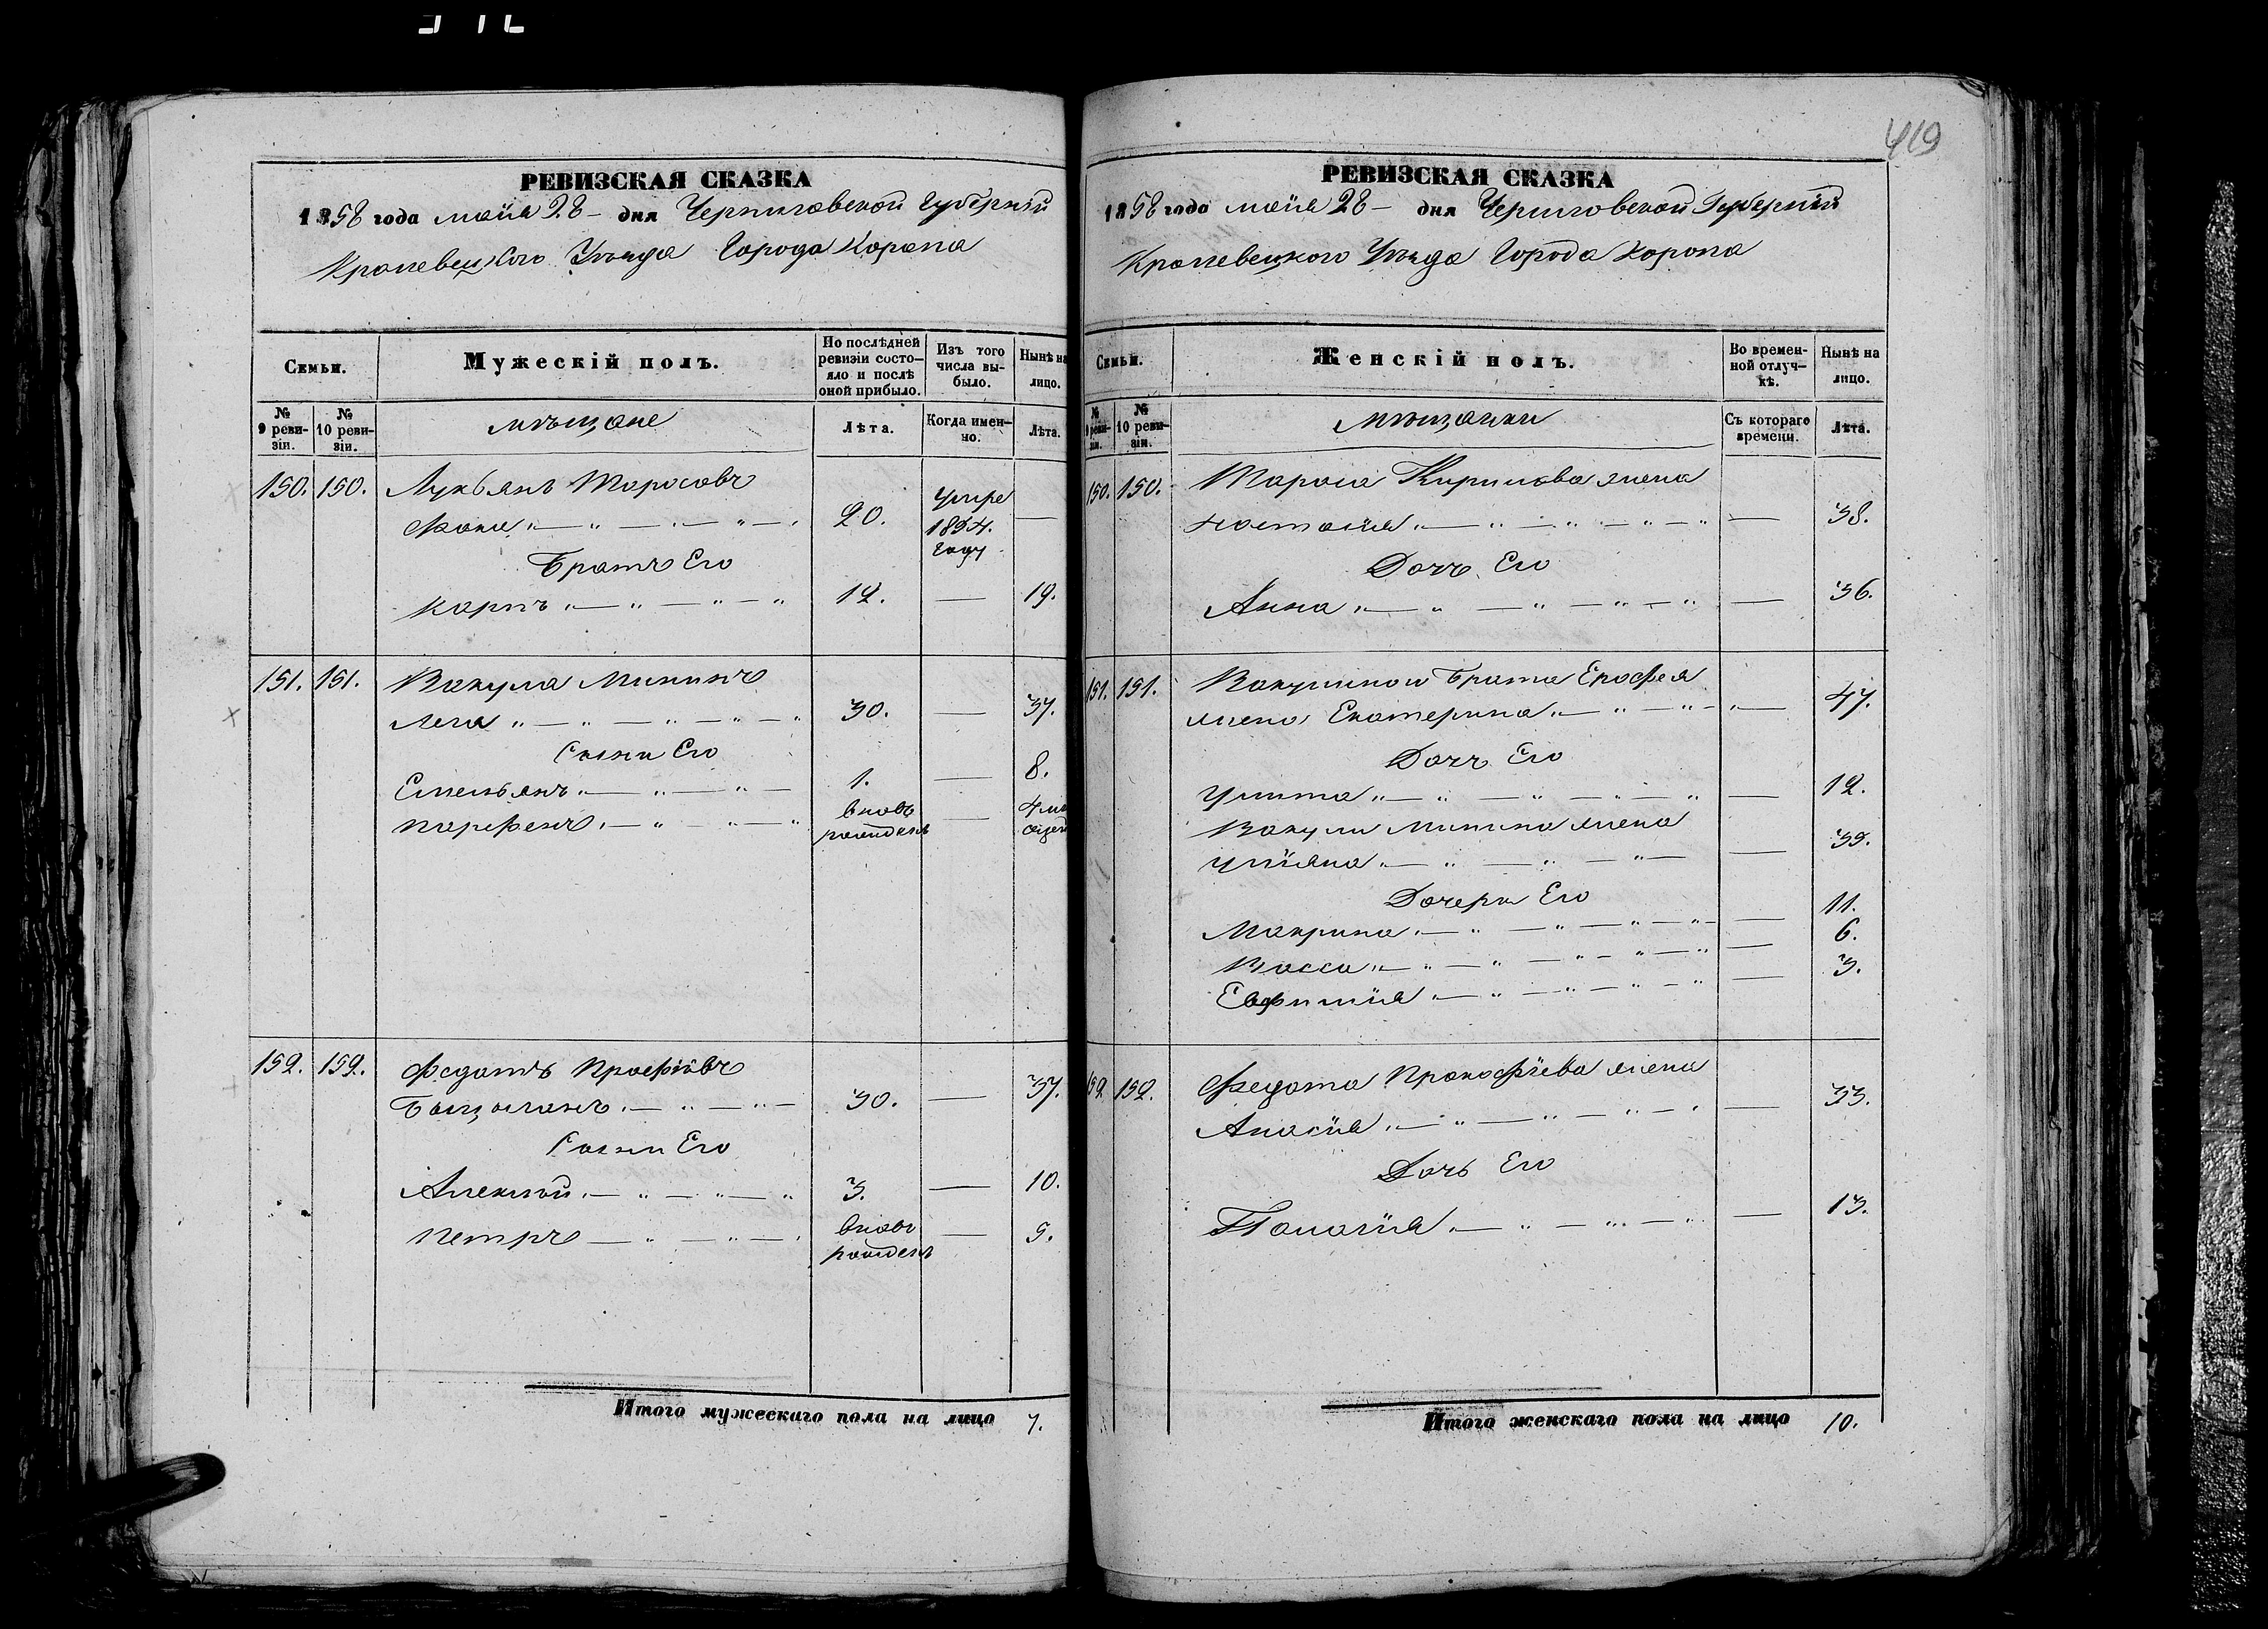 419
РЕВИЗСКАЯ СКАЗКА
1858 года маія 28 — дня Черниговской Губерніи
Кролевецкого Уѣзда Города Коропа
Семьи.
Мужескій полъ.
По послѣдней ревизіи состояло и послѣ оной прибыло.
Изъ того числа выбыло.
Нынѣ на лицо.
№ 9 ревизіи.
№ 10 ревизіи.
мѣщане
Лѣта.
Когда именно.
Лѣта.
150. 150. Лукьянъ Тарасовъ
20. умре 1854. году —
Братъ Его
Карпъ 12. — 19.
151. 151. Вакула Мининъ
Лега 30. — 37.
Сыны Его
Емельянъ 1. — 8.
Парфенъ вновь рожденъ — 4
152. 152. Федотъ
30. — 37.
Сыны Его
Алексѣй 3. — 10.
Петръ вновь рожденъ — 5.
Итого мужескаго пола на лицо 7.
РЕВИЗСКАЯ СКАЗКА
1858 года маія 28 — дня Черниговской Губерніи
Кролевецкого Уѣзда Города Коропа
Семьи.
Женскій полъ.
Во временной отлучкѣ.
Нынѣ на лицо.
№ 9 ревизіи.
№ 10 ревизіи.
мѣщанки
Съ котораго времени.
Лѣта.
150. 150. Тараса Кирилова жена
Настасія — 38.
Дочь Его
Анна — 36.
151. 151. Вакулиного брата Ерофея
жена Екатерина — 47.
Дочь Его
Улита — 12.
Вакулы Минина жена
Уліяна — 39.
Дочери Его
Макрина — 11.
Васса — 6.
Евфимія — 3.
152. 152. Федота Прокофіева жена
Анасія — 33.
Дочь Его
Палагія — 13.
Итого женскаго пола на лицо 10.